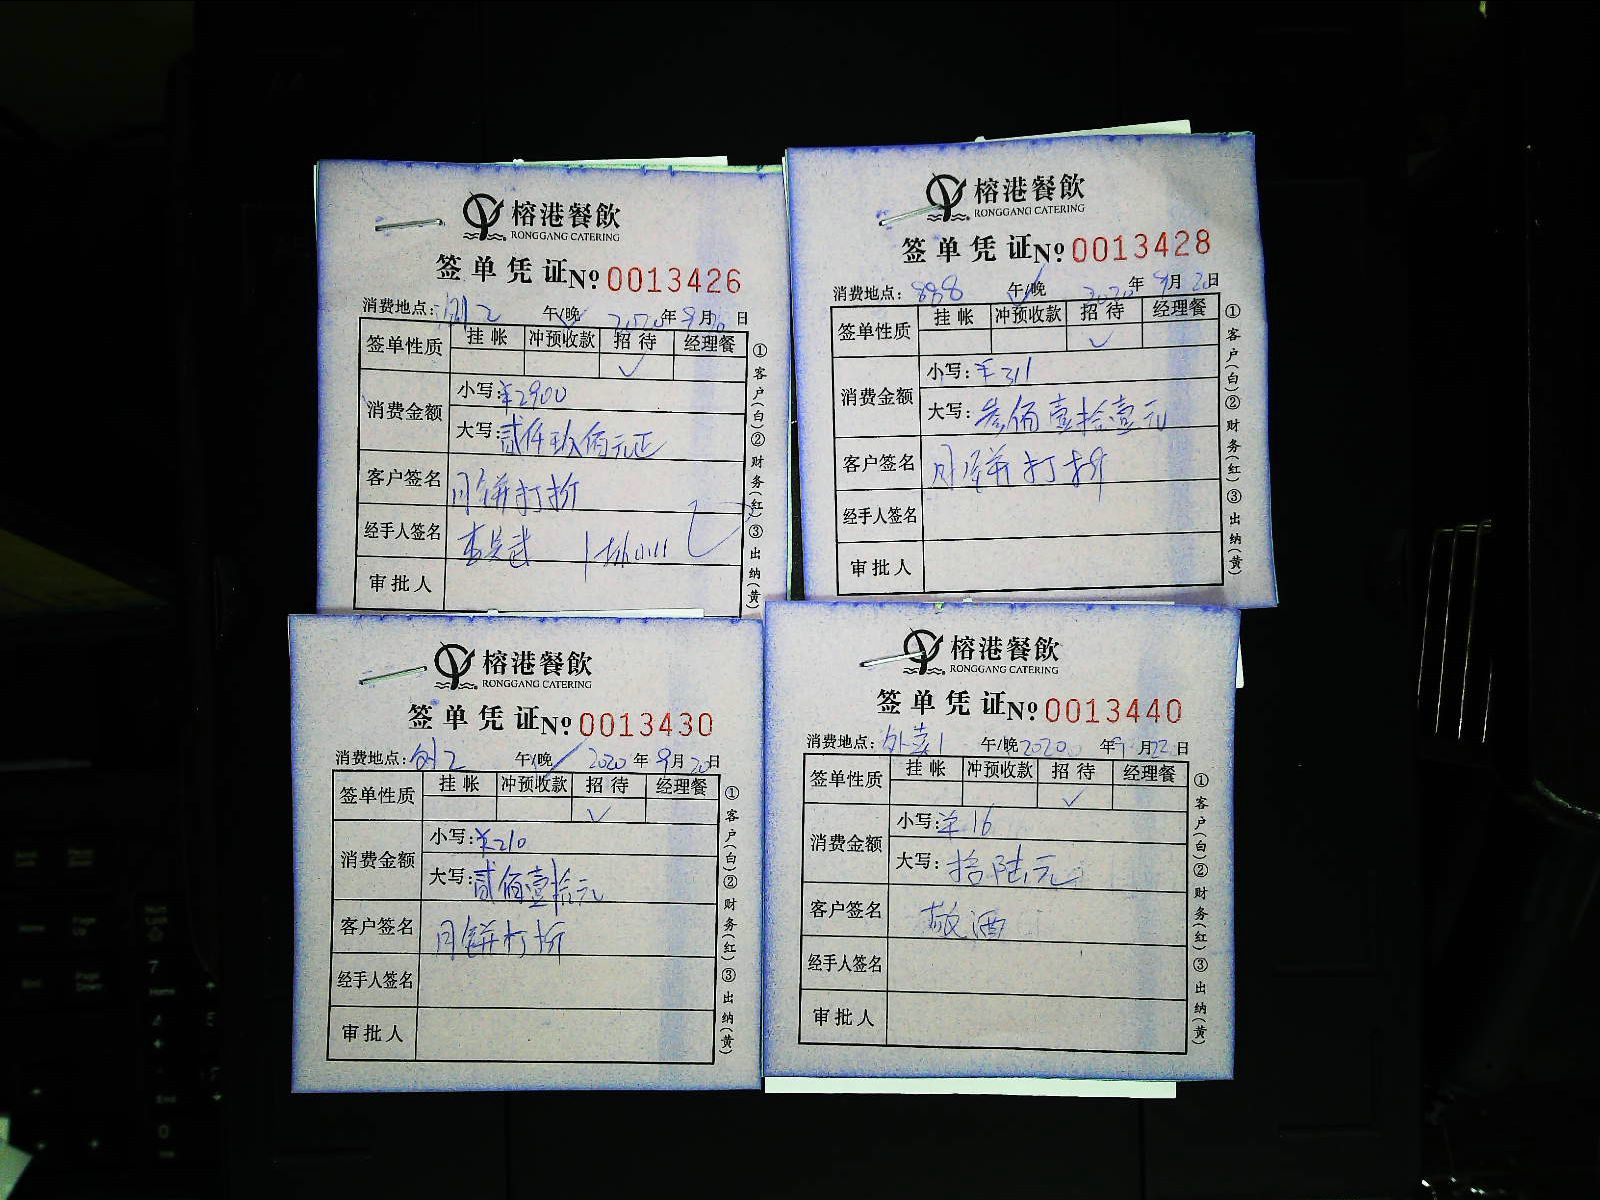 榕港餐飲
RONGGANG CATERING
签单凭证№0013426
消费地点: 2 午/晚 2020年9月20日
签单性质 挂帐 冲预收款 招待 经理餐
✓
消费金额 小写:¥2900
大写:贰仟玖佰元正
客户签名 月饼打折
经手人签名
审批人
①客户(白)②财务(红)③出纳(黄)
榕港餐飲
RONGGANG CATERING
签单凭证№0013428
消费地点:888 午/晚 2020年9月20日
签单性质 挂帐 冲预收款 招待 经理餐
✓
消费金额 小写:¥311
大写:叁佰壹拾壹元
客户签名 月饼打折
经手人签名
审批人
①客户(白)②财务(红)③出纳(黄)
榕港餐飲
RONGGANG CATERING
签单凭证№0013430
消费地点:外2 午/晚 2020年9月20日
签单性质 挂帐 冲预收款 招待 经理餐
✓
消费金额 小写:¥210
大写:贰佰壹拾元
客户签名 月饼打折
经手人签名
审批人
①客户(白)②财务(红)③出纳(黄)
榕港餐飲
RONGGANG CATERING
签单凭证№0013440
消费地点:外卖1 午/晚 2020年9月22日
签单性质 挂帐 冲预收款 招待 经理餐
✓
消费金额 小写:¥16
大写:拾陆元
客户签名 敬酒
经手人签名
审批人
①客户(白)②财务(红)③出纳(黄)